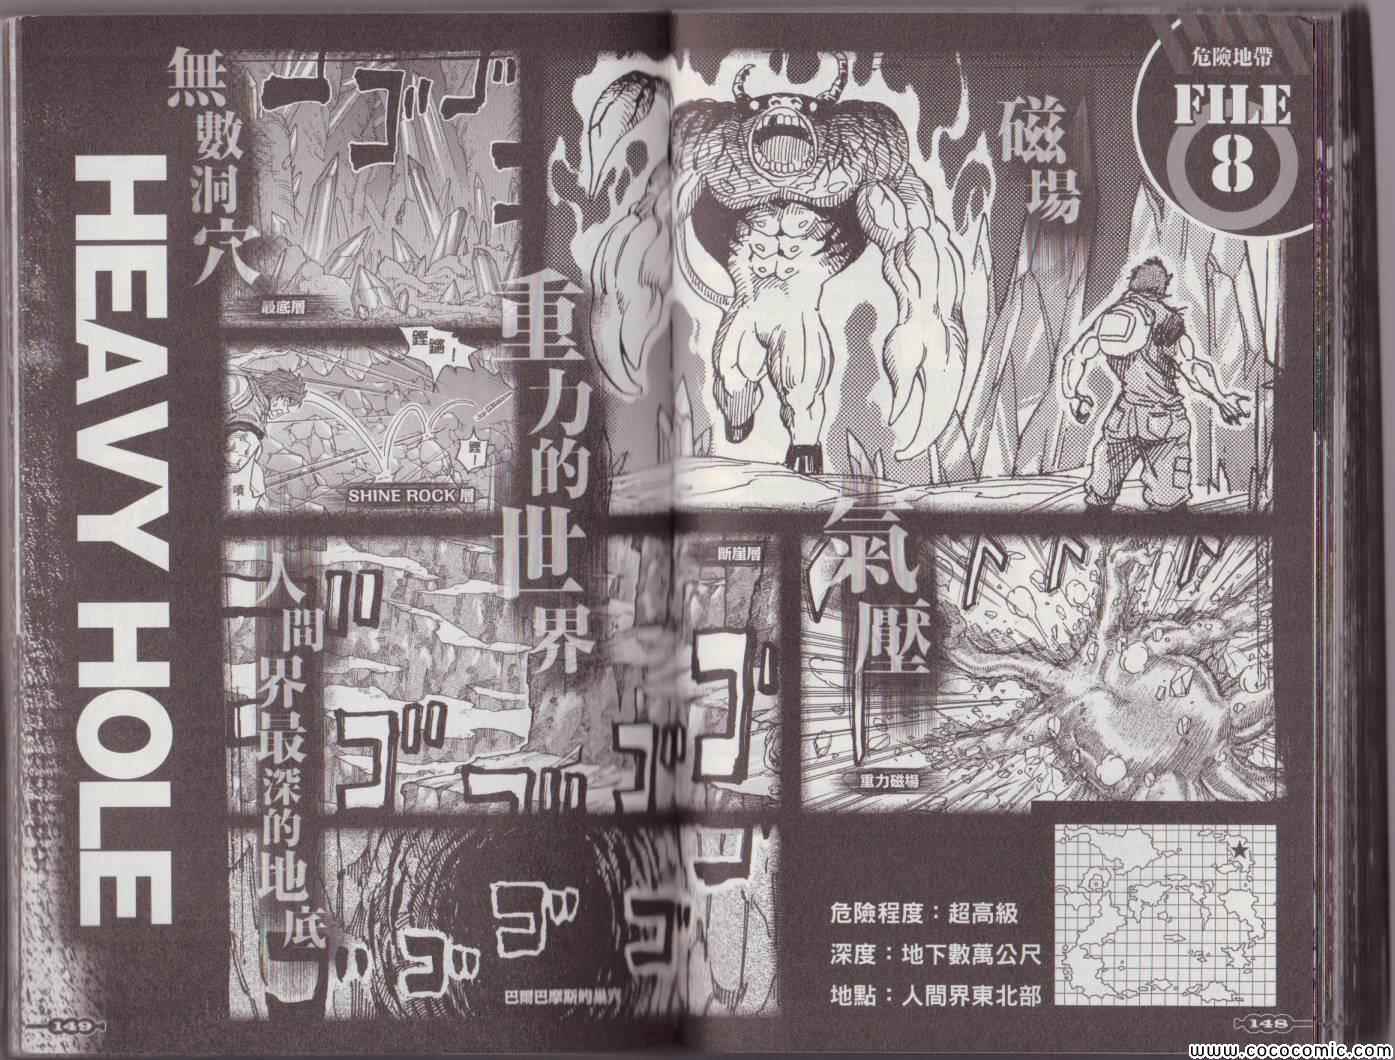 危險地帶
FILE
8
磁場
氣壓
重力磁場
危險程度：超高級
深度：地下數萬公尺
地點：人間界東北部
148
斷崖層
重力的世界
無數洞穴
最底層
鏗鏘！
SHINE ROCK 層
人間界最深的地底
巴爾巴摩斯的巢穴
ゴゴ
ゴゴゴ
ゴゴゴ
HEAVY HOLE
149
www.cococomic.com